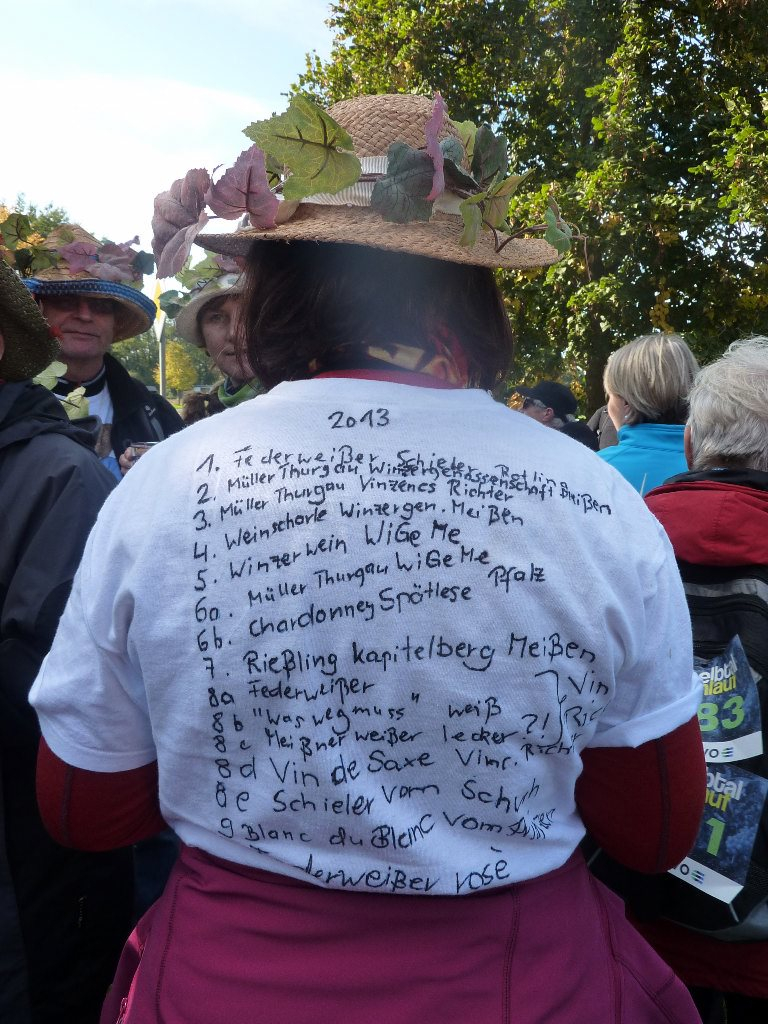 2013
1. Federweißer Schieler Rotling
2. Müller Thurgau Winzergenossenschaft Meißen
3. Müller Thurgau Vinzencs Richter
4. Weinschorle Winzergen. Meißen
5. Winzerwein WiGe Me
6a. Müller Thurgau WiGe Me
6b. Chardonney Spätlese Pfalz
7. Rießling Kapitelberg Meißen
8a Federweißer
8b "was weg muss" weiß
8c Meißner weißer lecker ?!
Vin
Ric
Richter
8d Vin de Saxe Vinc.
8e Schieler vom Schuh
9 Blanc du Blenc vom
derweißer rosè
elbtal
lauf
83
VO
elbtal
uf
1
VO